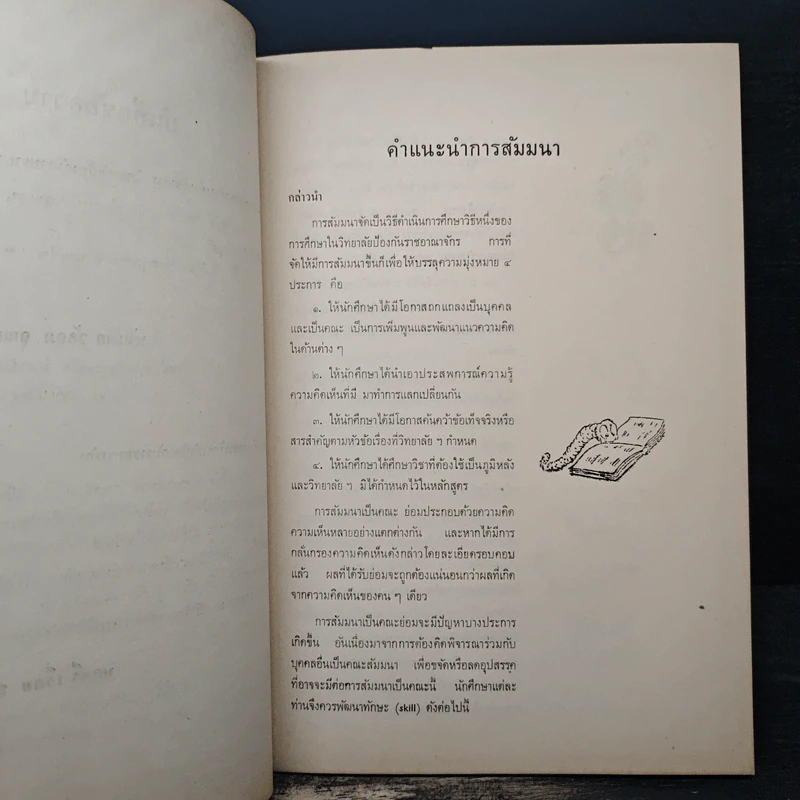 คำแนะนำการสัมมนา
กล่าวนำ
การสัมมนาจัดเป็นวิธีดำเนินการศึกษาวิธีหนึ่งของ
การศึกษาในวิทยาลัยป้องกันราชอาณาจักร การที่
จัดให้มีการสัมมนาขึ้นก็เพื่อให้บรรลุความมุ่งหมาย ๔
ประการ คือ
๑. ให้นักศึกษาได้มีโอกาสถกแถลงเป็นบุคคล
และเป็นคณะ เป็นการเพิ่มพูนและพัฒนาแนวความคิด
ในด้านต่าง ๆ
๒. ให้นักศึกษาได้นำเอาประสพการณ์ความรู้
ความคิดเห็นที่มี มาทำการแลกเปลี่ยนกัน
๓. ให้นักศึกษาได้มีโอกาสค้นคว้าข้อเท็จจริงหรือ
สารสำคัญตามหัวข้อเรื่องที่วิทยาลัย ฯ กำหนด
๔. ให้นักศึกษาได้ศึกษาวิชาที่ต้องใช้เป็นภูมิหลัง
และวิทยาลัย ฯ มิได้กำหนดไว้ในหลักสูตร
การสัมมนาเป็นคณะ ย่อมประกอบด้วยความคิด
ความเห็นหลายอย่างแตกต่างกัน และหากได้มีการ
กลั่นกรองความคิดเห็นดังกล่าวโดยละเอียดรอบคอบ
แล้ว ผลที่ได้รับย่อมจะถูกต้องแน่นอนกว่าผลที่เกิด
จากความคิดเห็นของคน ๆ เดียว
การสัมมนาเป็นคณะย่อมจะมีปัญหาบางประการ
เกิดขึ้น อันเนื่องมาจากการต้องคิดพิจารณาร่วมกับ
บุคคลอื่นเป็นคณะสัมมนา เพื่อขจัดหรือลดอุปสรรค
ที่อาจจะมีต่อการสัมมนาเป็นคณะนี้ นักศึกษาแต่ละ
ท่านจึงควรพัฒนาทักษะ (skill) ดังต่อไปนี้